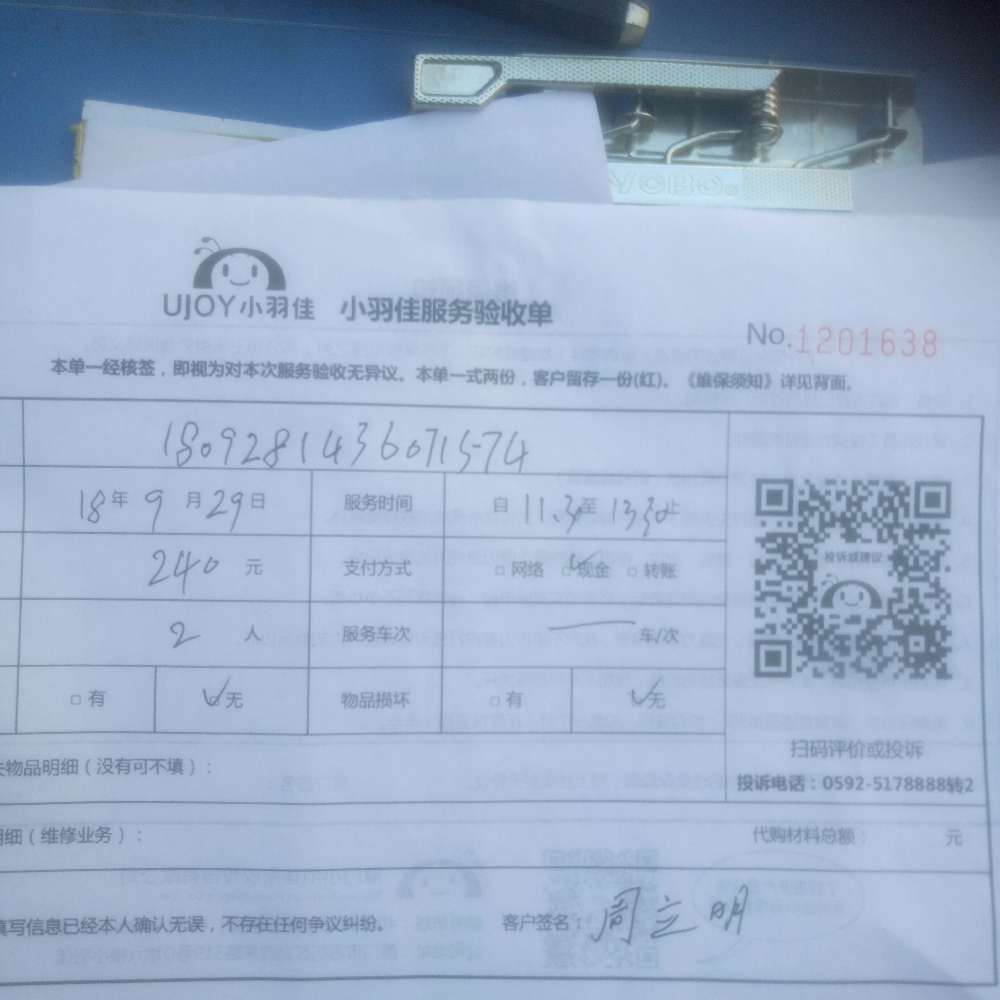 UJOY小羽佳 小羽佳服务验收单
No.1201638
本单一经核签，即视为对本次服务验收无异议。本单一式两份，客户留存一份(红)。《维保须知》详见背面。
1809281436071574
18年 9 月 29 日 服务时间 自 11.30 至 13.30 止
240 元 支付方式 □网络 ☑现金 □转账
投诉或建议
2 人 服务车次 — 车/次
□有 ☑无 物品损坏 □有 ☑无
扫码评价或投诉
失物品明细（没有可不填）：
投诉电话：0592-5178888转2
明细（维修业务）： 代购材料总额： 元
填写信息已经本人确认无误，不存在任何争议纠纷。 客户签名：周立明